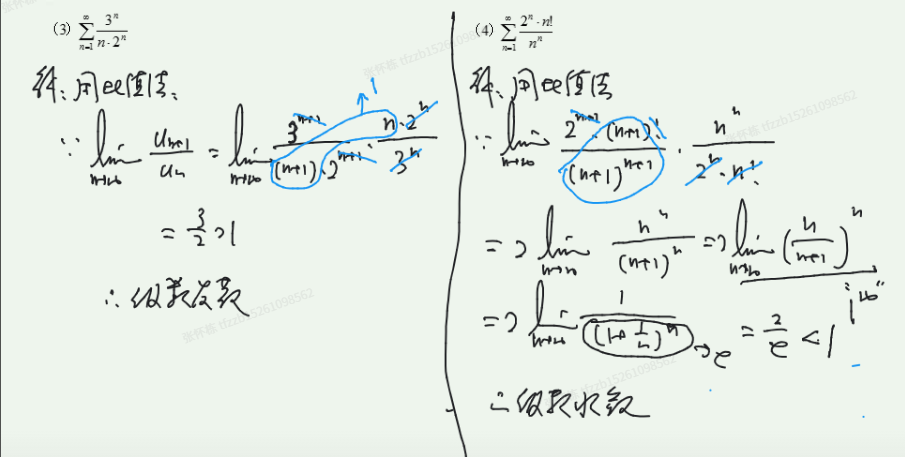 (3) \sum_{n=1}^{\infty} \frac{3^n}{n \cdot 2^n}
解:用比值法:
∵ \lim_{n→∞} \frac{u_{n+1}}{u_n} = \lim_{n→∞} \frac{3^{n+1}}{(n+1) \cdot 2^{n+1}} \cdot \frac{n \cdot 2^n}{3^n} → 1
= \frac{3}{2} > 1
∴ 级数发散
(4) \sum_{n=1}^{\infty} \frac{2^n \cdot n!}{n^n}
解:用比值法
∵ \lim_{n→∞} \frac{2^{n+1} \cdot (n+1)!}{(n+1)^{n+1}} \cdot \frac{n^n}{2^n \cdot n!}
= 2 \lim_{n→∞} \frac{n^n}{(n+1)^n} = 2 \lim_{n→∞} (\frac{n}{n+1})^n "1^∞"
= 2 \lim_{n→∞} \frac{1}{(1+\frac{1}{n})^n} → e = \frac{2}{e} < 1
∴ 级数收敛
张怀栋 tfzzb15261098562